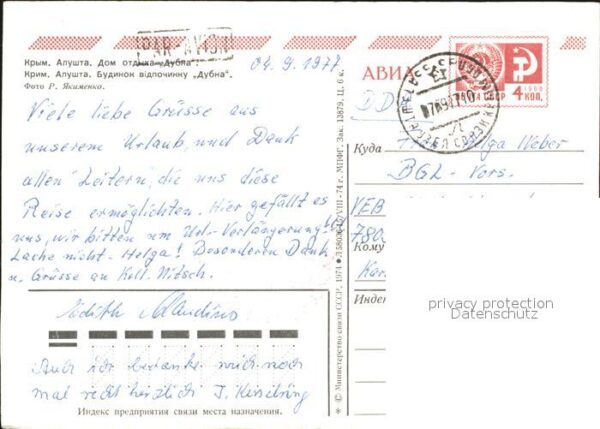 PAR AVION
Крым. Алушта. Дом отдыха „Дубна".
Крим. Алушта. Будинок відпочинку „Дубна".
Фото Р. Якименко.
04.9.1977
Viele liebe Grüsse aus
unserem Urlaub, und Dank
allen Leitern, die uns diese
Reise ermöglichten. Hier gefällt es
uns, wir bitten um Url.-Verlängerung!
Lache nicht - Helga! Besonderen Dank
u. Grüsse an Koll. Nitsch.
Edith
Auch ich bedanke mich noch
mal recht herzlich I.
Индекс предприятия связи места назначения.
* © Министерство связи СССР. 1974 VIII-74 г. МПФГ. Зак. 13879. Ц. 6 к.
АВИА
4 КОП.
DD
Куда
Helga Weber
BGL-Vors.
VEB
Кому
Индекс
privacy protection
Datenschutz